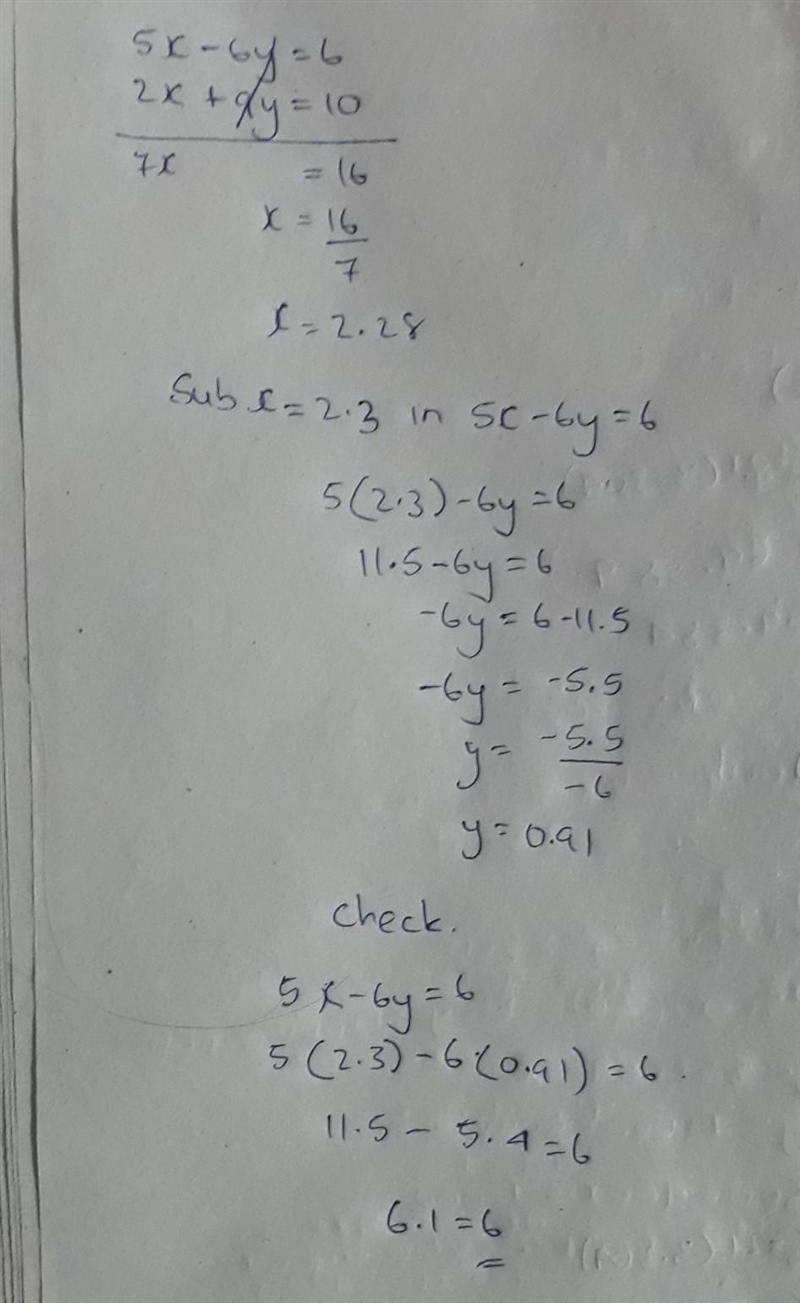 5x - 6y = 6
2x + y = 10
7x = 16
x = 16
7
x = 2.28
Sub x = 2.3 in 5x - 6y = 6
5(2.3) - 6y = 6
11.5 - 6y = 6
-6y = 6 - 11.5
-6y = -5.5
y = -5.5
-6
y = 0.91
Check.
5x - 6y = 6
5(2.3) - 6(0.91) = 6.
11.5 - 5.4 = 6
6.1 = 6